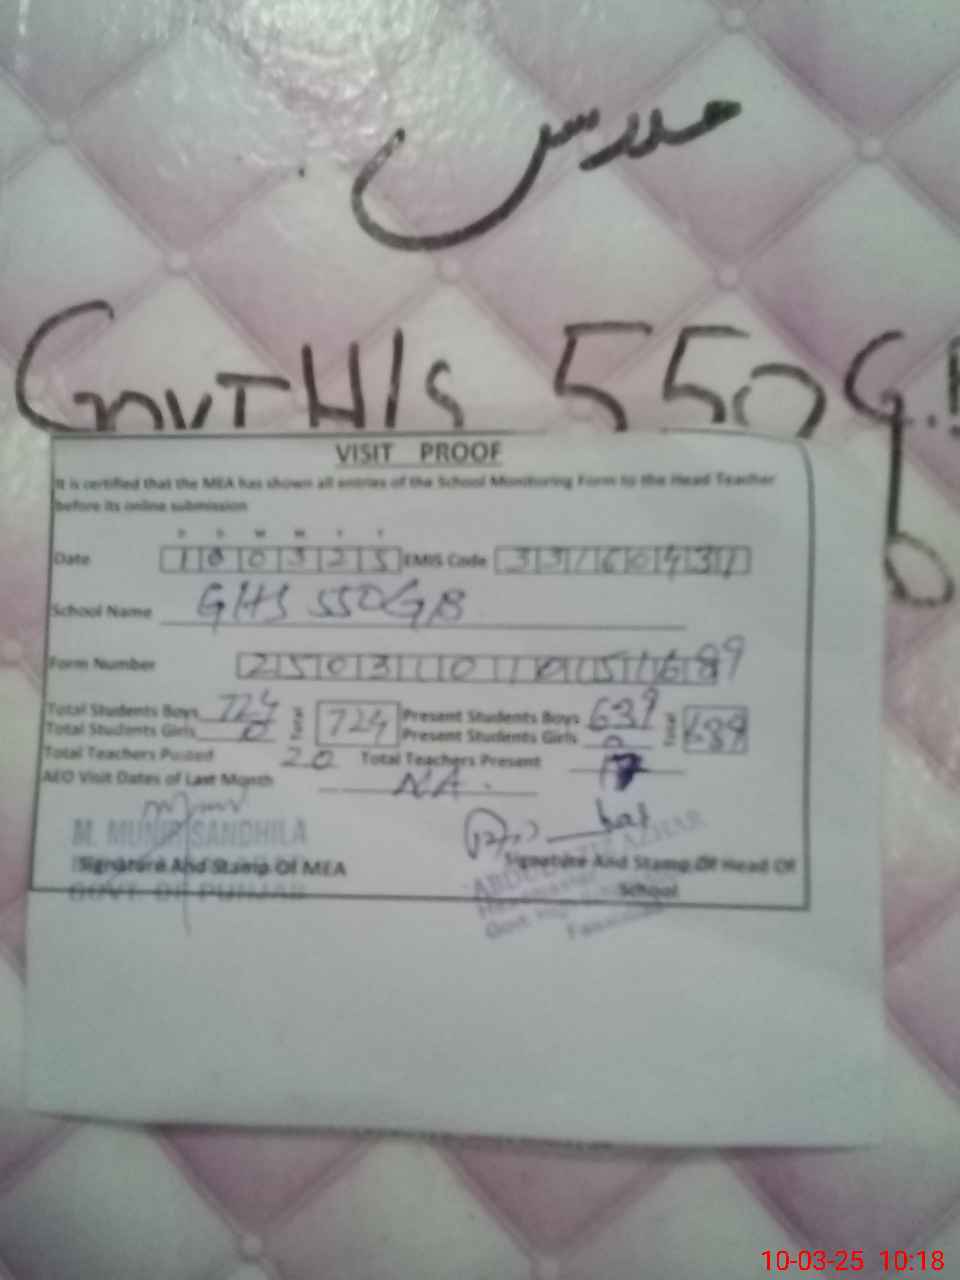 مدرس
GOVT H/S 550 G.B
VISIT PROOF
It is certified that the MEA has shown all entries of the School Monitoring Form to the Head Teacher
before its online submission
D D M M Y Y
Date 100325 EMIS Code 33160431
School Name GHS 550GB
Form Number
Total Students Boys 724 Total 724 Present Students Boys 689 Total 689
Total Students Girls 0 Present Students Girls 0
Total Teachers Posted 20 Total Teachers Present
AEO Visit Dates of Last Month NA.
M. MUNIR SANDHILA
Signature And Stamp Of MEA Signature And Stamp Of Head Of
School
GOVT OF PUNJAB
10-03-25 10:18